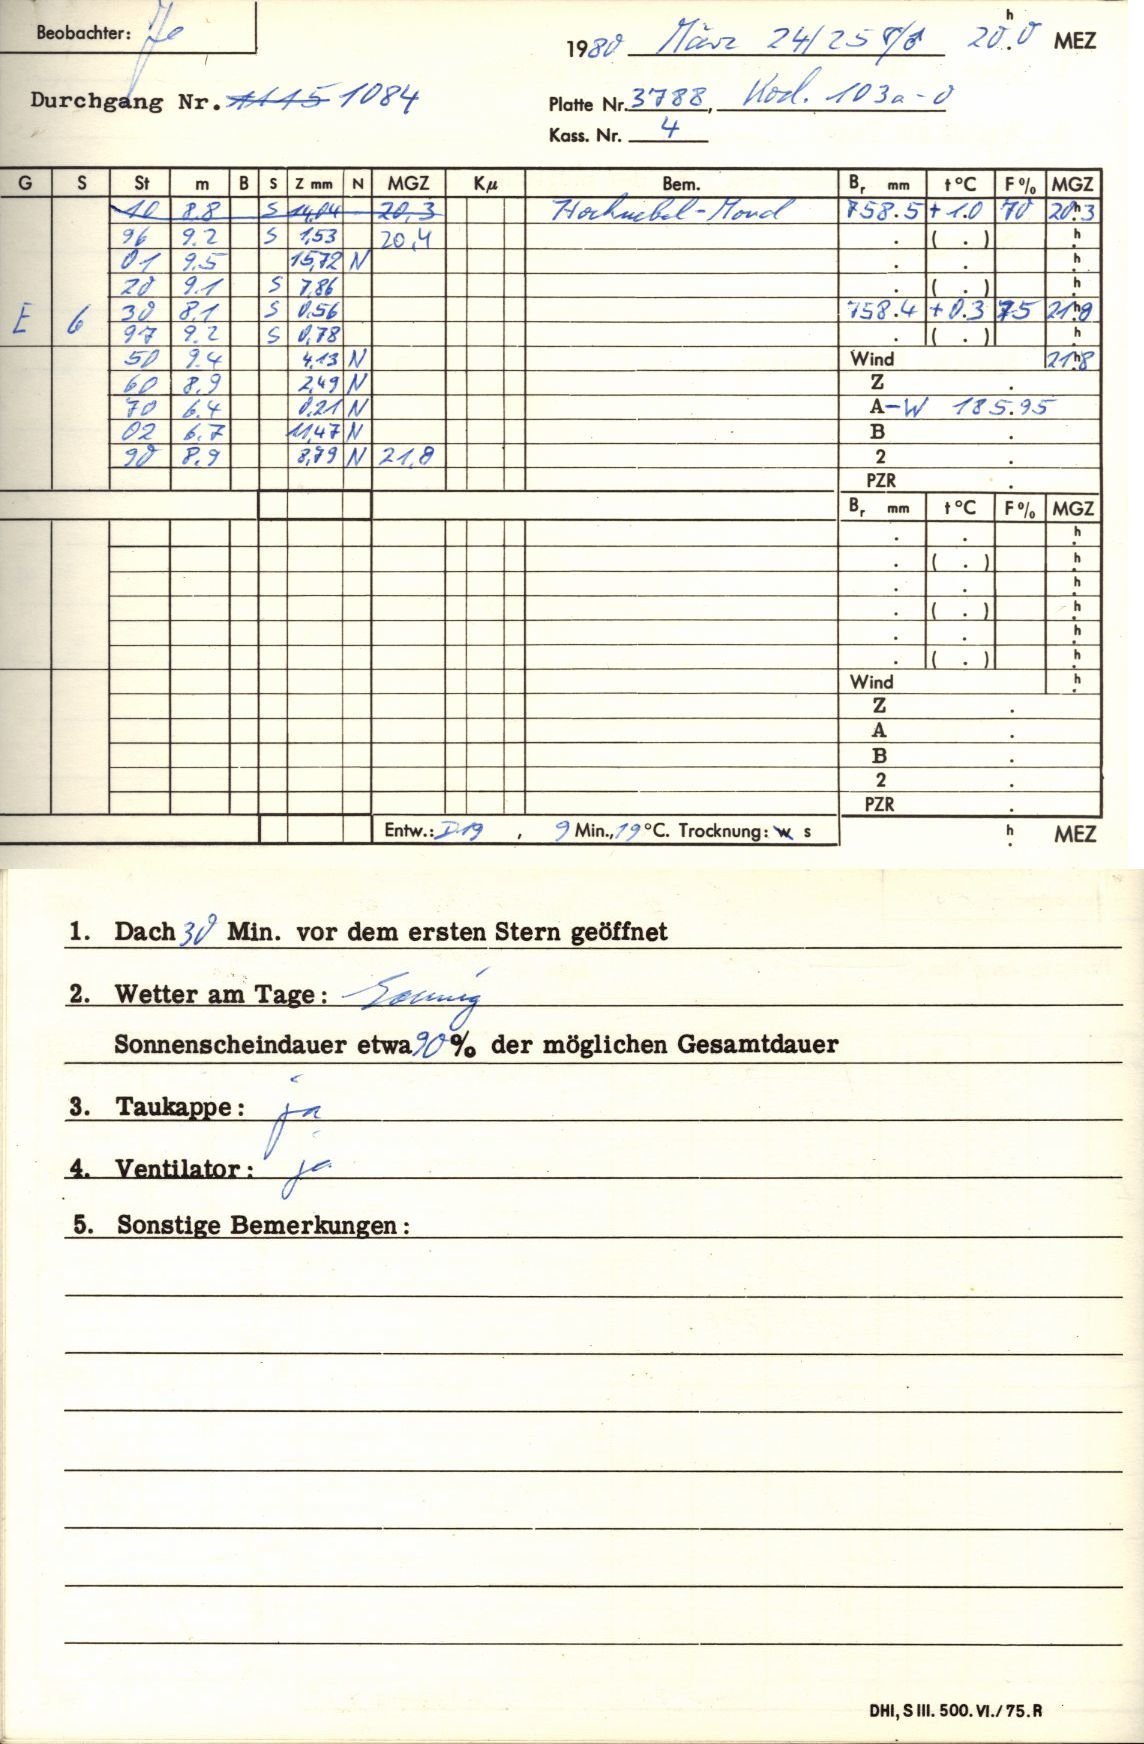 Beobachter: Je
1980 März 24/25 20h.0 MEZ
Durchgang Nr. 1115 1084
Platte Nr. 3788, Kod. 103a-0
Kass. Nr. 4
G S St m B S Z mm N MGZ Kµ Bem. Br mm t °C F % MGZ
10 8.8 S 14,04 20,3 Hochnebel-Mond 758.5 +1.0 70 20h.3
96 9.2 S 1,53 20,4 . ( . ) h.
01 9.5 15,72 N . . h.
20 9.1 S 7,86 . ( . ) h.
E 6 30 8.1 S 0.56 758.4 +0.3 75 21h.8
97 9.2 S 0,78 . ( . ) h.
50 9.4 4,13 N Wind 21h.8
60 8.9 2,49 N Z .
70 6.4 0,21 N A-W 185.95
02 6.7 11,47 N B .
90 8.9 8,79 N 21,8 2 .
PZR .
Br mm t °C F % MGZ
. . h.
. ( . ) h.
. . h.
. ( . ) h.
. . h.
. ( . ) h.
Wind h.
Z .
A .
B .
2 .
PZR .
Entw.: D19 , 9 Min., 19 °C. Trocknung: w s h. MEZ
1. Dach 30 Min. vor dem ersten Stern geöffnet
2. Wetter am Tage: Sonnig
Sonnenscheindauer etwa 90 % der möglichen Gesamtdauer
3. Taukappe: ja
4. Ventilator: ja
5. Sonstige Bemerkungen:
DHI, S III. 500. VI./75. R